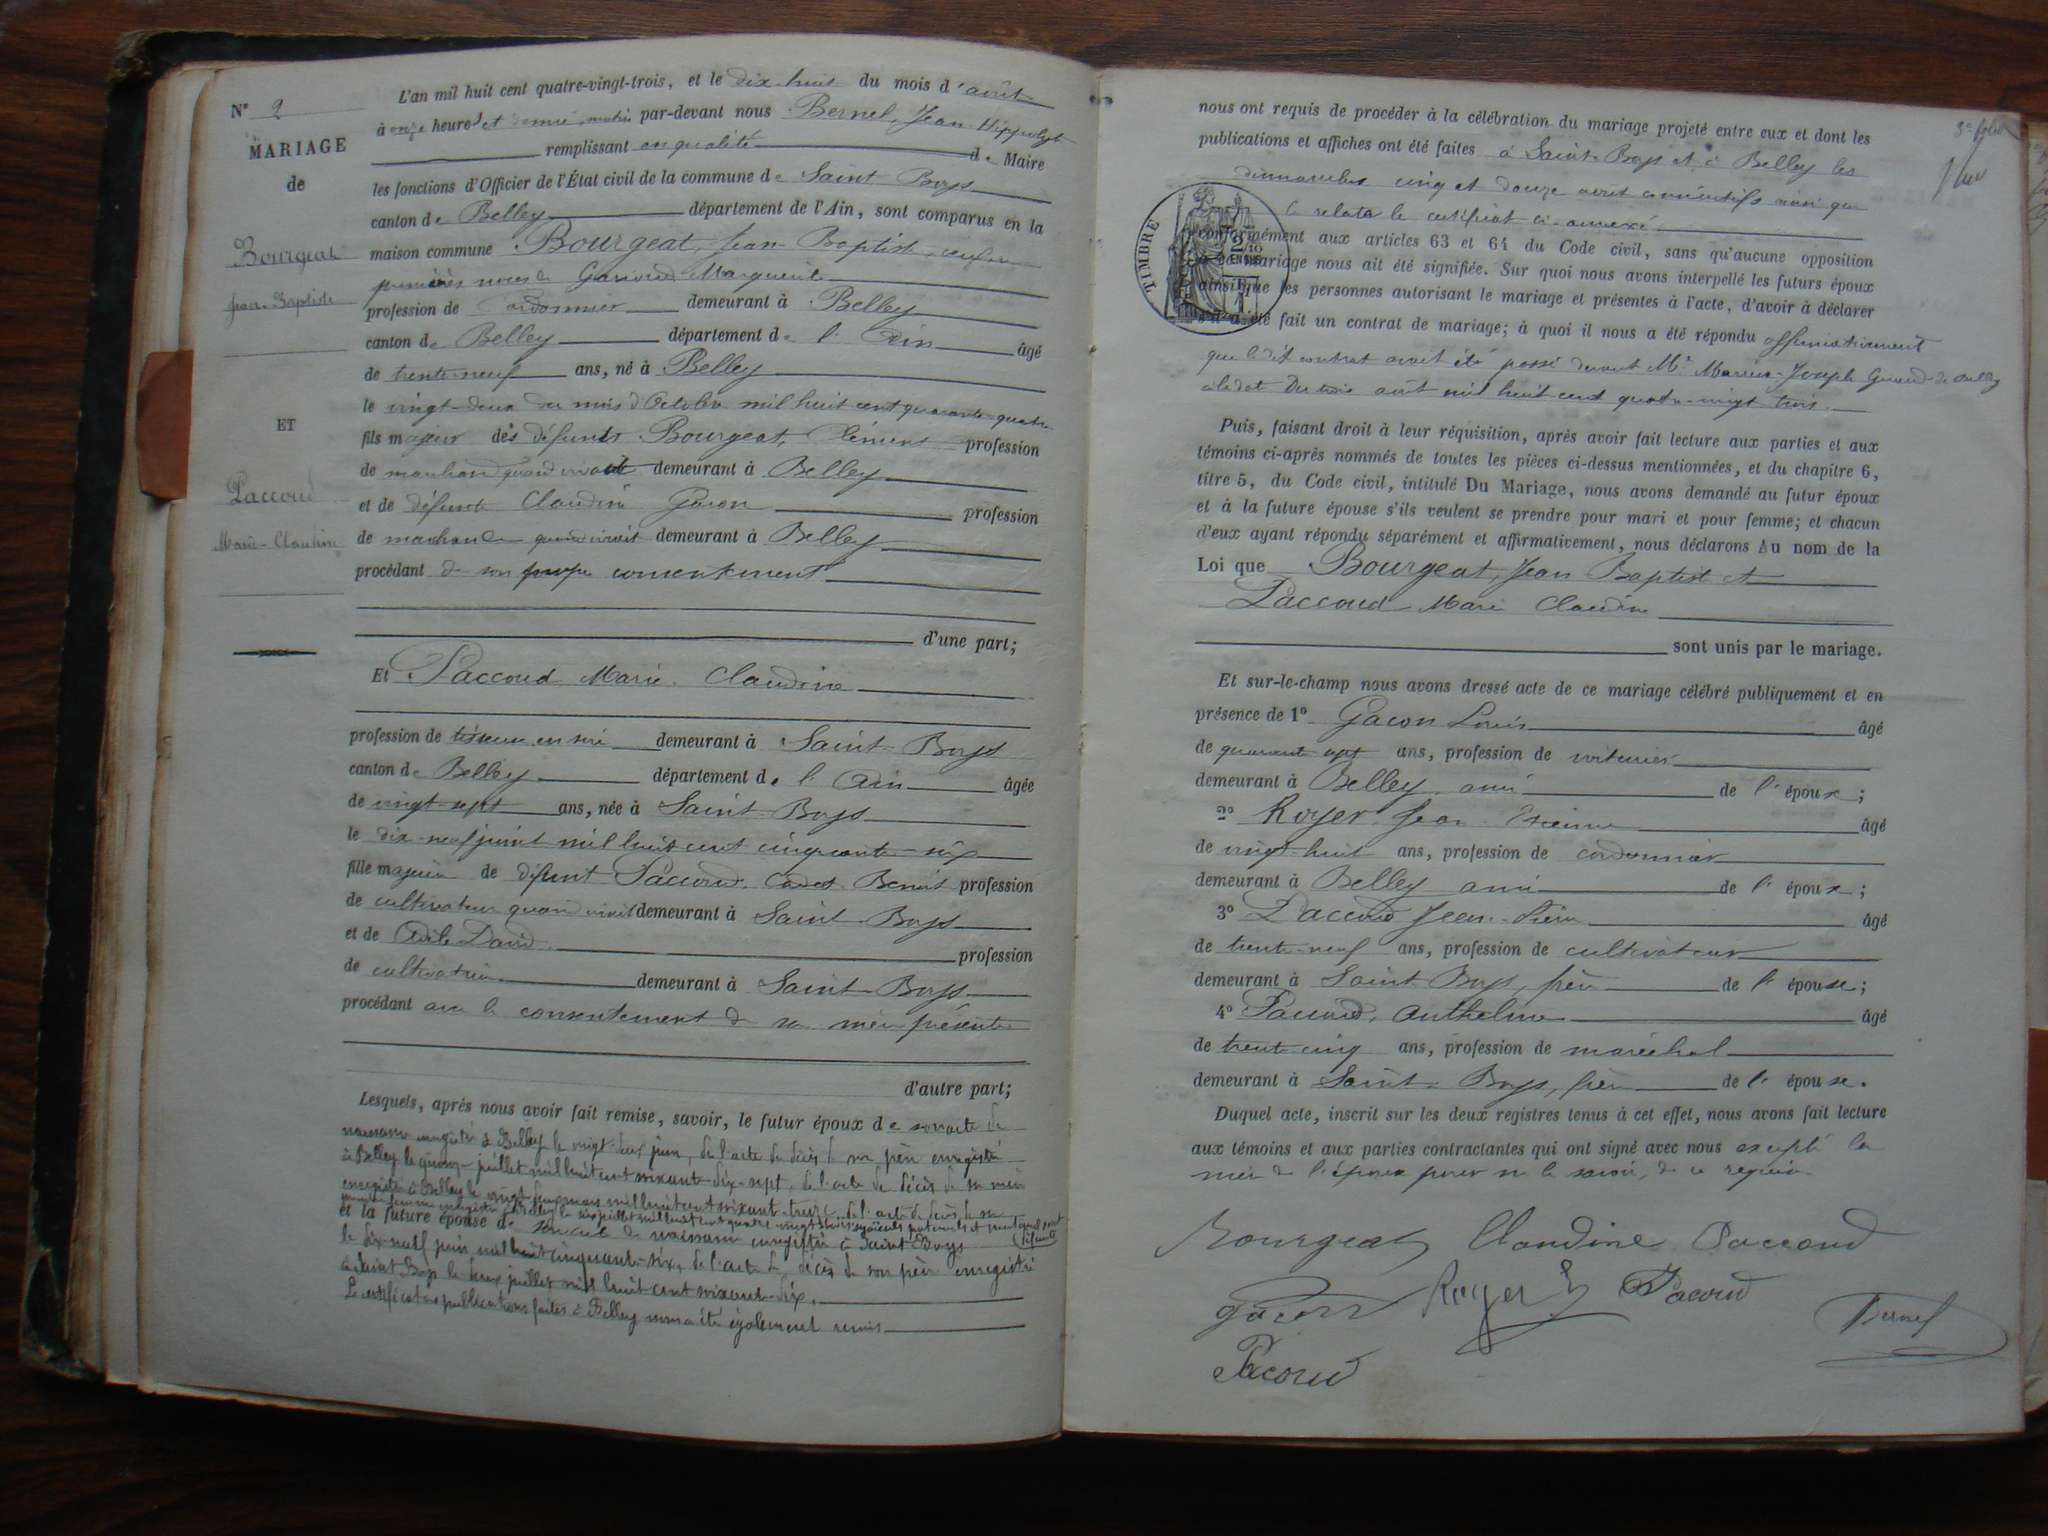 N° 2
MARIAGE
de
Bourgeat
Jean-Baptiste
ET
Paccoud
Marie-Claudine
L'an mil huit cent quatre-vingt-trois, et le dix-huit du mois d'août
à onze heures et demie matin par-devant nous Bernel, Jean Hippolyte
remplissant en qualité de Maire
les fonctions d'Officier de l'État civil de la commune de Saint-Boys
canton de Belley département de l'Ain, sont comparus en la
maison commune Bourgeat, Jean-Baptiste, veuf en
premières noces de Marguerite
profession de Cordonnier demeurant à Belley
canton de Belley département de l'Ain âgé
de trente-neuf ans, né à Belley
le vingt-deux du mois d'Octobre mil huit cent quarante-quatre
fils majeur des défunts Bourgeat, Clément profession
de marchand quand vivait demeurant à Belley
et de défunte Claudine Gacon profession
de marchande quand vivait demeurant à Belley
procédant de son propre consentement
d'une part;
Et Paccoud Marie-Claudine
profession de tisseuse en soie demeurant à Saint-Boys
canton de Belley département de l'Ain âgée
de vingt-sept ans, née à Saint-Boys
le dix-neuf juin mil huit cent cinquante-six
fille majeure de défunt Paccoud, Cadet Benoit profession
de cultivateur quand vivait demeurant à Saint-Boys
et de David profession
de cultivatrice demeurant à Saint-Boys
procédant avec le consentement de sa mère présente
d'autre part;
Lesquels, après nous avoir fait remise, savoir, le futur époux de son acte de
naissance enregistré à Belley le vingt-deux juin, de l'acte de décès de son père enregistré
à Belley le juillet mil huit cent soixante-dix-sept, de l'acte de décès de sa mère
enregistré à Belley le vingt mars mil huit cent soixante-treize, de l'acte de décès de sa
première femme enregistré à Belley le six juillet mil huit cent quatre-vingt
et la future épouse de son acte de naissance enregistré à Saint-Boys
le dix-neuf juin mil huit cinquante-six, de l'acte de décès de son père enregistré
à Saint-Boys le deux juillet mil huit cent soixante-dix.
Le certificat de publications faites à Belley nous a été également remis
3e folio
nous ont requis de procéder à la célébration du mariage projeté entre eux et dont les
publications et affiches ont été faites à Saint-Boys et à Belley les
dimanches cinq et douze août consécutifs ainsi que
le relate le certificat ci-annexé
TIMBRE
conformément aux articles 63 et 64 du Code civil, sans qu'aucune opposition
mariage nous ait été signifiée. Sur quoi nous avons interpellé les futurs époux
ainsi que les personnes autorisant le mariage et présentes à l'acte, d'avoir à déclarer
s'il a été fait un contrat de mariage; à quoi il nous a été répondu affirmativement
que le dit contrat avait été passé devant Me Marius-Joseph de Belley
à la date du trois août mil huit cent quatre-vingt-trois.
Puis, faisant droit à leur réquisition, après avoir fait lecture aux parties et aux
témoins ci-après nommés de toutes les pièces ci-dessus mentionnées, et du chapitre 6,
titre 5, du Code civil, intitulé Du Mariage, nous avons demandé au futur époux
et à la future épouse s'ils veulent se prendre pour mari et pour femme; et chacun
d'eux ayant répondu séparément et affirmativement, nous déclarons Au nom de la
Loi que Bourgeat, Jean-Baptiste et
Paccoud Marie Claudine
sont unis par le mariage.
Et sur-le-champ nous avons dressé acte de ce mariage célébré publiquement et en
présence de 1° Gacon Louis âgé
de quarante-sept ans, profession de voiturier
demeurant à Belley, ami de l'époux;
2° Royer Jean Etienne âgé
de vingt-huit ans, profession de cordonnier
demeurant à Belley ami de l'époux;
3° Paccoud Jean-Pierre âgé
de trente-neuf ans, profession de cultivateur
demeurant à Saint-Boys, frère de l'épouse;
4° Paccoud, Anthelme âgé
de trente-cinq ans, profession de maréchal
demeurant à Saint-Boys, frère de l'épouse.
Duquel acte, inscrit sur les deux registres tenus à cet effet, nous avons fait lecture
aux témoins et aux parties contractantes qui ont signé avec nous excepté la
mère de l'épouse pour ne le savoir, de ce requise
Bourgeat Claudine Paccoud
Gacon Royer E Pacoud
Bernel
Pacoud